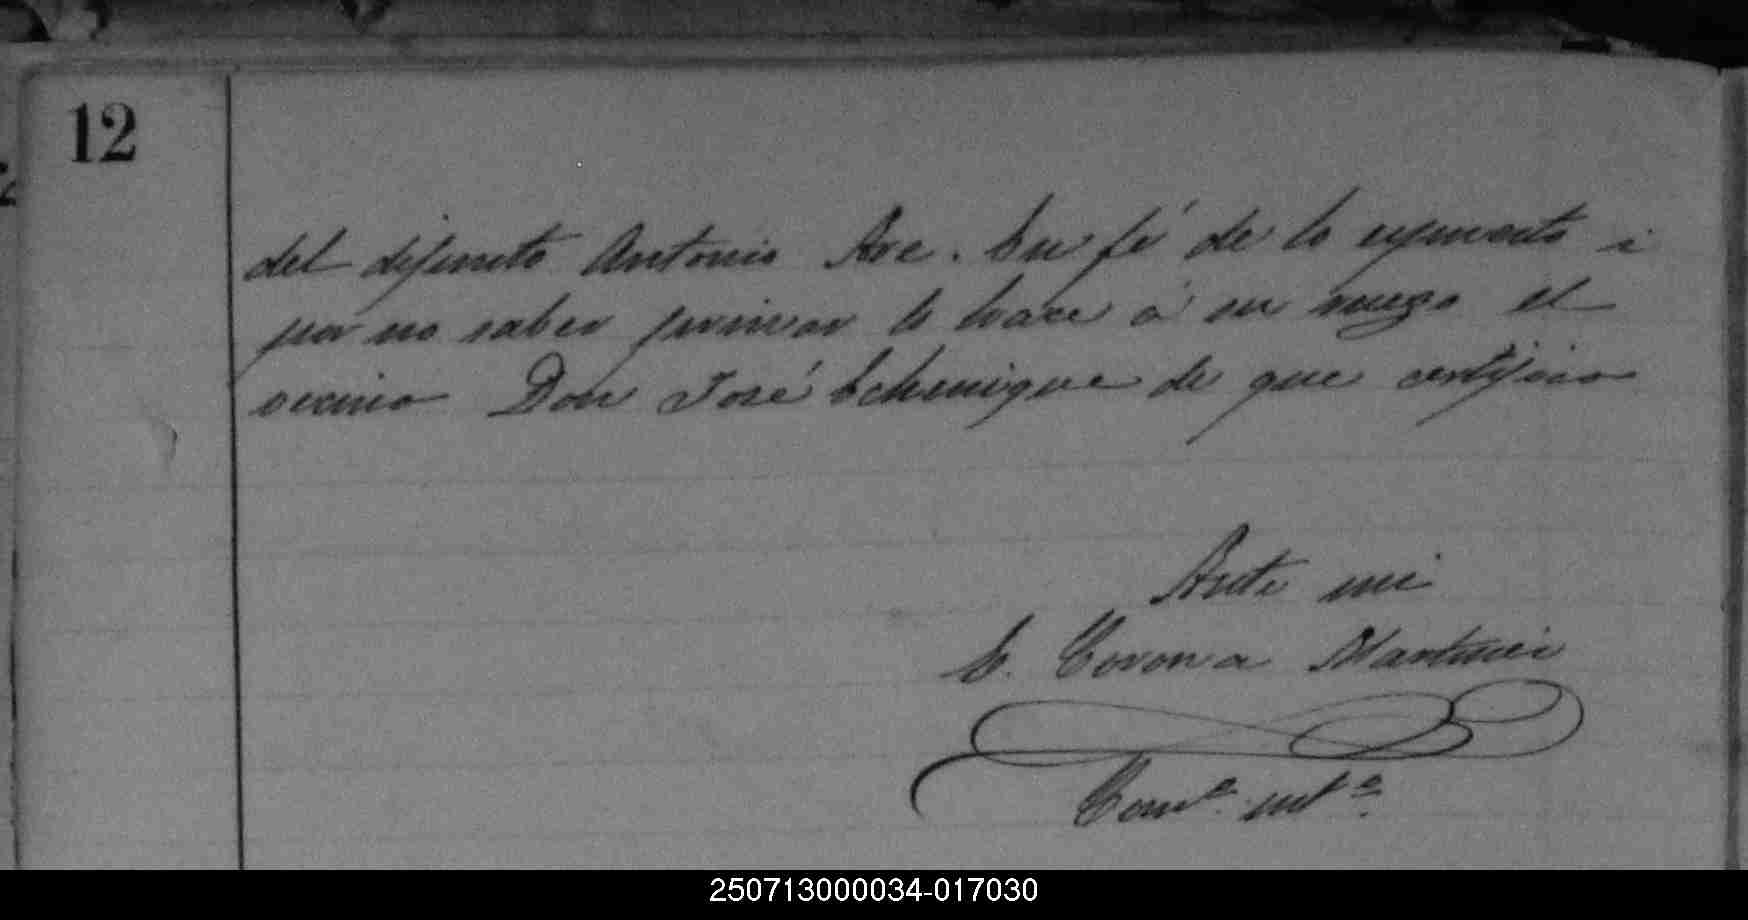 12
del difunto Antonio Ave. En fé de lo espuesto i
por no saber firmar lo hace á su ruego el
vecino Don José Echenique de que certifico
Ante mi
E. Corona Martinez
Comº. intº.
250713000034-017030